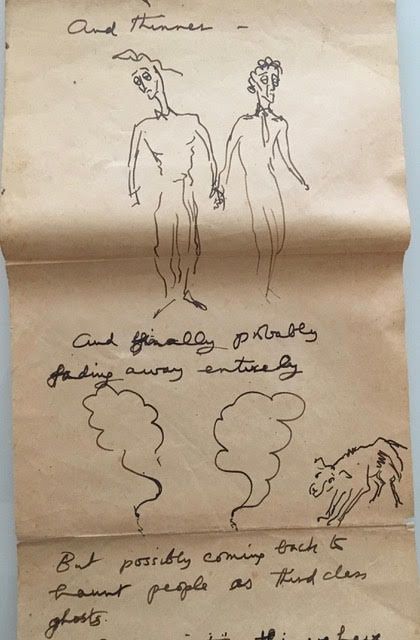 And thinner –
And finally probably
fading away entirely
But possibly coming back to
haunt people as third class
ghosts.